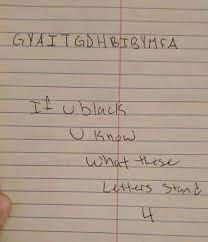 GYAITTGDHBIBYMFA
If u black
U know
what these
Letters Stand
4